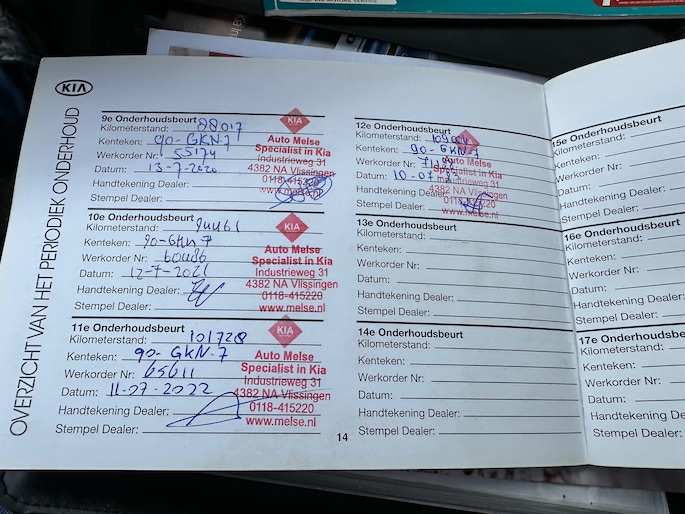 KIA
OVERZICHT VAN HET PERIODIEK ONDERHOUD
9e Onderhoudsbeurt
Kilometerstand: 88017
Kenteken: 90-GKN-7
Werkorder Nr: 55174
Datum: 13-7-2020
Handtekening Dealer:
Stempel Dealer:
KIA
Auto Melse
Specialist in Kia
Industrieweg 31
4382 NA Vlissingen
0118-415220
www.melse.nl
10e Onderhoudsbeurt
Kilometerstand:
Kenteken: 90-GKN-7
Werkorder Nr: 60086
Datum: 12-7-2021
Handtekening Dealer:
Stempel Dealer:
KIA
Auto Melse
Specialist in Kia
Industrieweg 31
4382 NA Vlissingen
0118-415220
www.melse.nl
11e Onderhoudsbeurt
Kilometerstand: 101728
Kenteken: 90-GKN-7
Werkorder Nr: 65611
Datum: 11-07-2022
Handtekening Dealer:
Stempel Dealer:
KIA
Auto Melse
Specialist in Kia
Industrieweg 31
4382 NA Vlissingen
0118-415220
www.melse.nl
12e Onderhoudsbeurt
Kilometerstand:
Kenteken: 90-GKN-7
Werkorder Nr:
Datum:
Handtekening Dealer:
Stempel Dealer:
KIA
Auto Melse
Specialist in Kia
Industrieweg 31
4382 NA Vlissingen
www.melse.nl
13e Onderhoudsbeurt
Kilometerstand:
Kenteken:
Werkorder Nr:
Datum:
Handtekening Dealer:
Stempel Dealer:
14e Onderhoudsbeurt
Kilometerstand:
Kenteken:
Werkorder Nr:
Datum:
Handtekening Dealer:
Stempel Dealer:
14
15e Onderhoudsbeu
Kilometerstand:
Kenteken:
Werkorder Nr:
Datum:
Handtekening Dealer:
Stempel Dealer:
16e Onderhoudsbeu
Kilometerstand:
Kenteken:
Werkorder Nr:
Datum:
Handtekening Dealer:
Stempel Dealer:
17e Onderhoudsbe
Kilometerstand:
Kenteken:
Werkorder Nr:
Datum:
Handtekening De
Stempel Dealer: